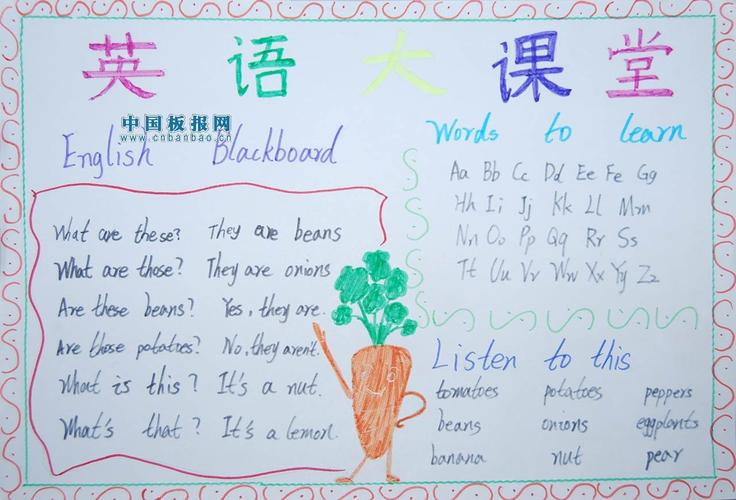 英语大课堂
中国板报网
www.cnbanbao.cn
English Blackboard
What are these? They are beans
What are those? They are onions
Are these beans? Yes, they are.
Are those potatoes? No, they aren't.
What is this? It's a nut.
What's that? It's a lemon.
Words to learn
Aa Bb Cc Dd Ee Fe Gg
Hh Ii Jj Kk Ll Mm
Nn Oo Pp Qq Rr Ss
Tt Uu Vv Ww Xx Yy Zz
Listen to this
tomatoes potatoes peppers
beans onions eggplants
banana nut pear